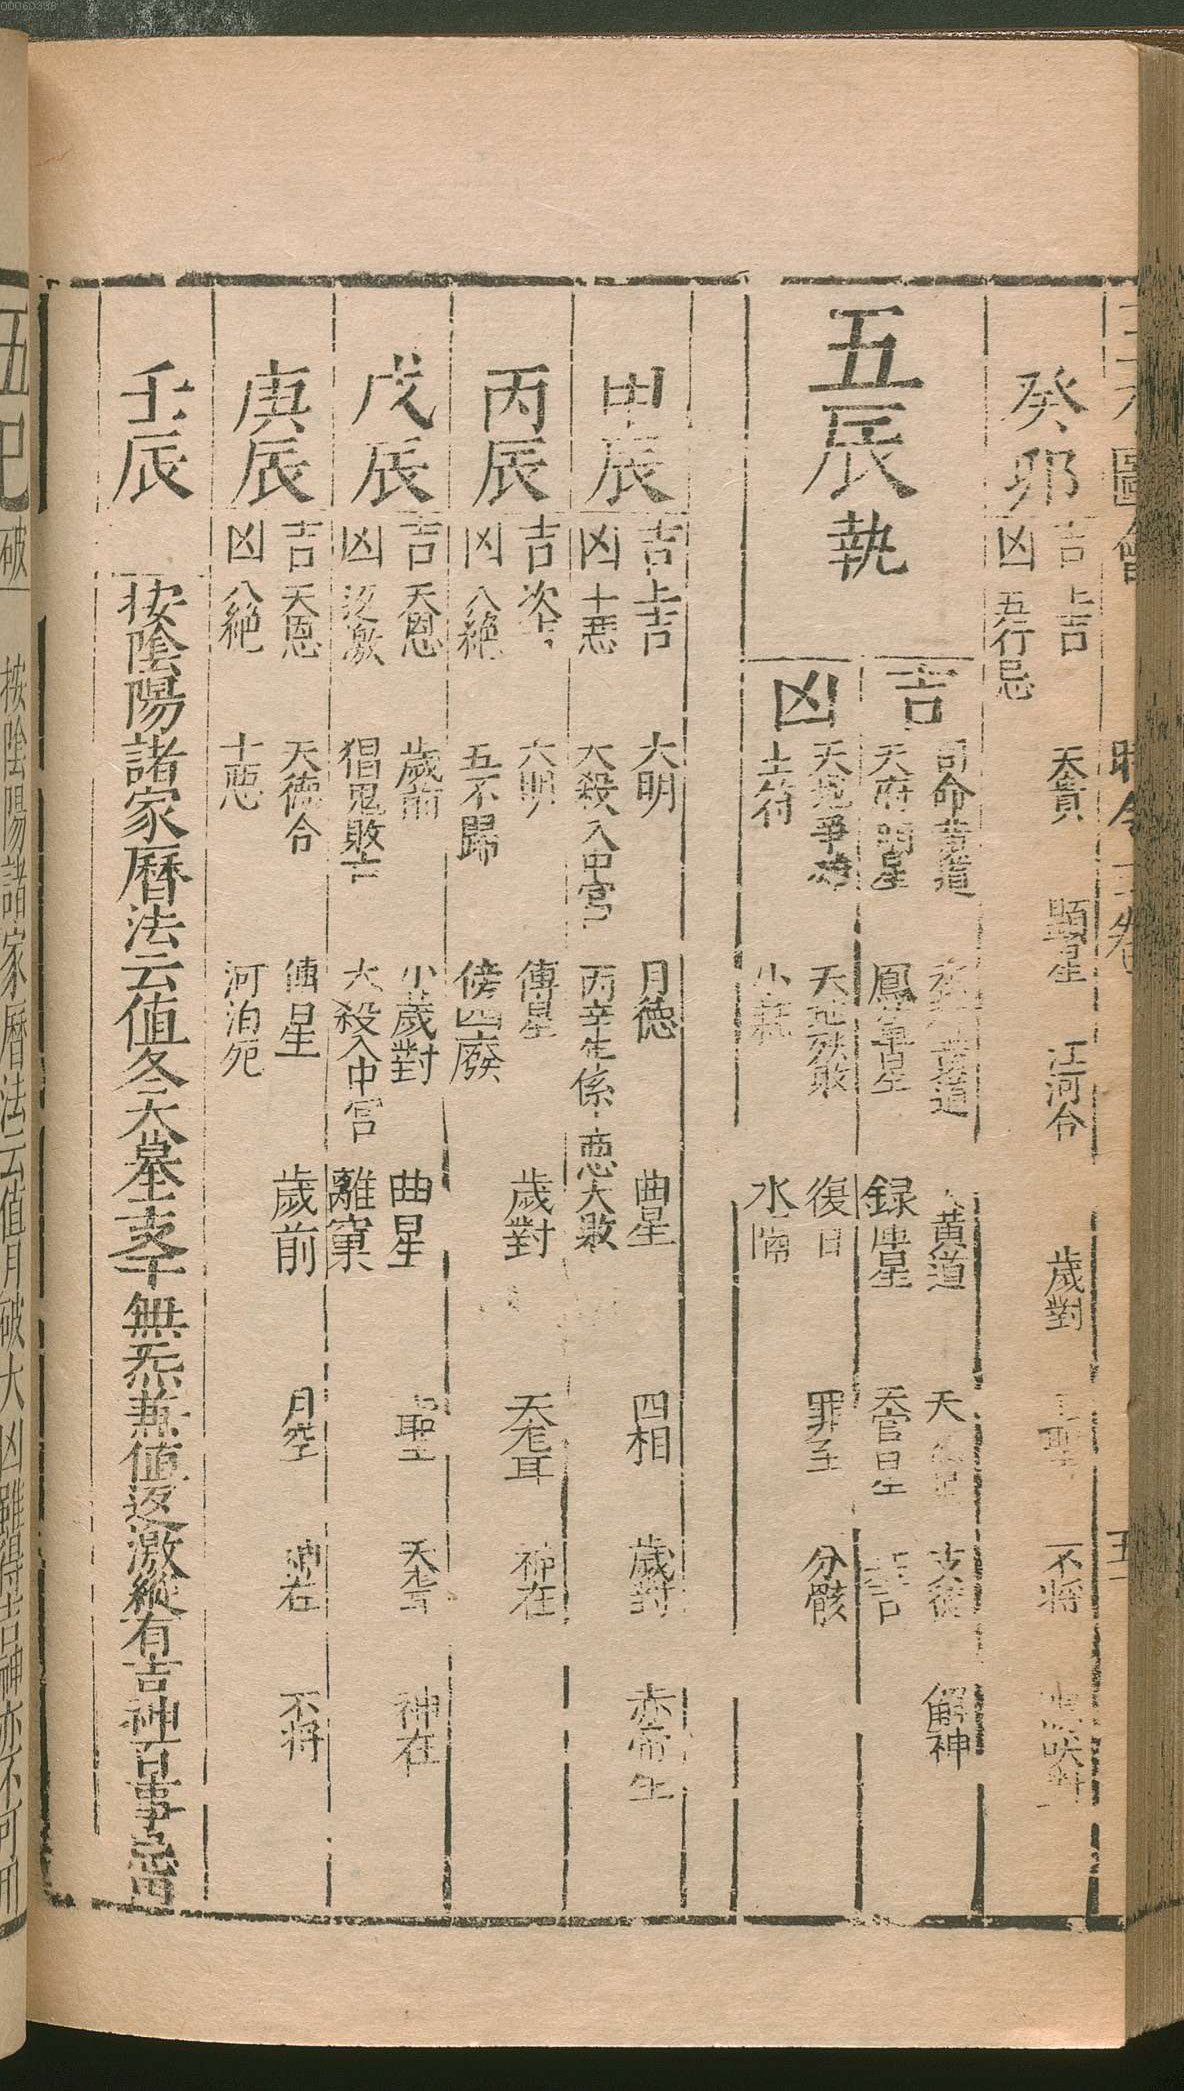 圖會
時令
癸卯
吉 上吉 天貴 顯星 江河合 歲對 不將
凶 五行忌
五辰執
吉
司命黃道 黃道 天 支德 解神
天府明星 鳳輦星 録庫星 天官星
凶
天地爭雄 天地殃敗 復日 罪至 分骸
土符 小耗 水隔
甲辰
吉 上吉 大明 月德 曲星 四相 歲對 赤帝生
凶 十惡 大殺入中宮 丙辛生係十惡大敗
丙辰
吉 次吉 大明 傳星 歲對 天聾 神在
凶 八絕 五不歸 傍四廢
戊辰
吉 天恩 歲前 小歲對 曲星 聖 天聾 神在
凶 返激 猖鬼敗亡 大殺入中宮 離窠
庚辰
吉 天恩 天德合 傳星 歲前 月空 神在 不將
凶 八絕 十惡 河泊死
壬辰
按陰陽諸家曆法云值冬大墓支干無炁兼值返激縱有吉神百事忌
五巳破
按陰陽諸家曆法云值月破大凶雖得吉神亦不可用
00060398